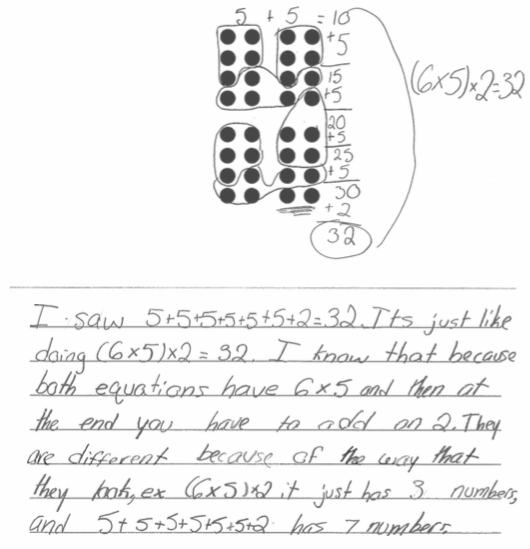 5 + 5 = 10
+5
15
(6×5)×2=32
+5
20
+5
25
+5
30
+2
32
I saw 5+5+5+5+5+5+2=32. Its just like
doing (6×5)×2 = 32. I know that because
both equations have 6×5 and then at
the end you have to add on 2. They
are different because of the way that
they look, ex (6×5)×2 it just has 3 numbers,
and 5+5+5+5+5+5+2 has 7 numbers.